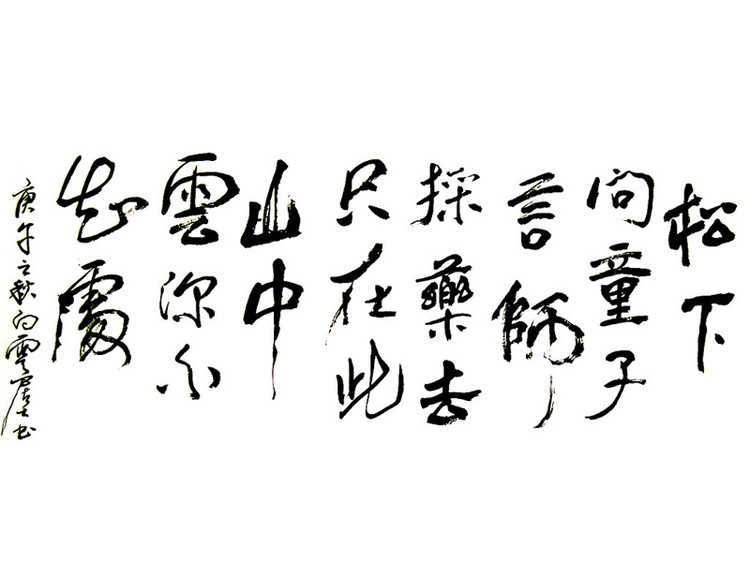 松下
問童子
言師
採藥去
只在此
山中
雲深不
知處
庚午之秋白雲居士書